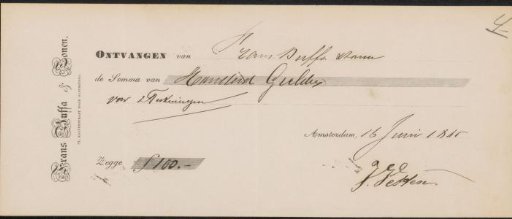 Frans Buffa & Zonen.
ONTVANGEN van Frans Buffa & Zonen
de Somma van Honderd Gulden
voor 2 Teekeningen
Amsterdam, 16 Juni 18
Zegge f 100.-